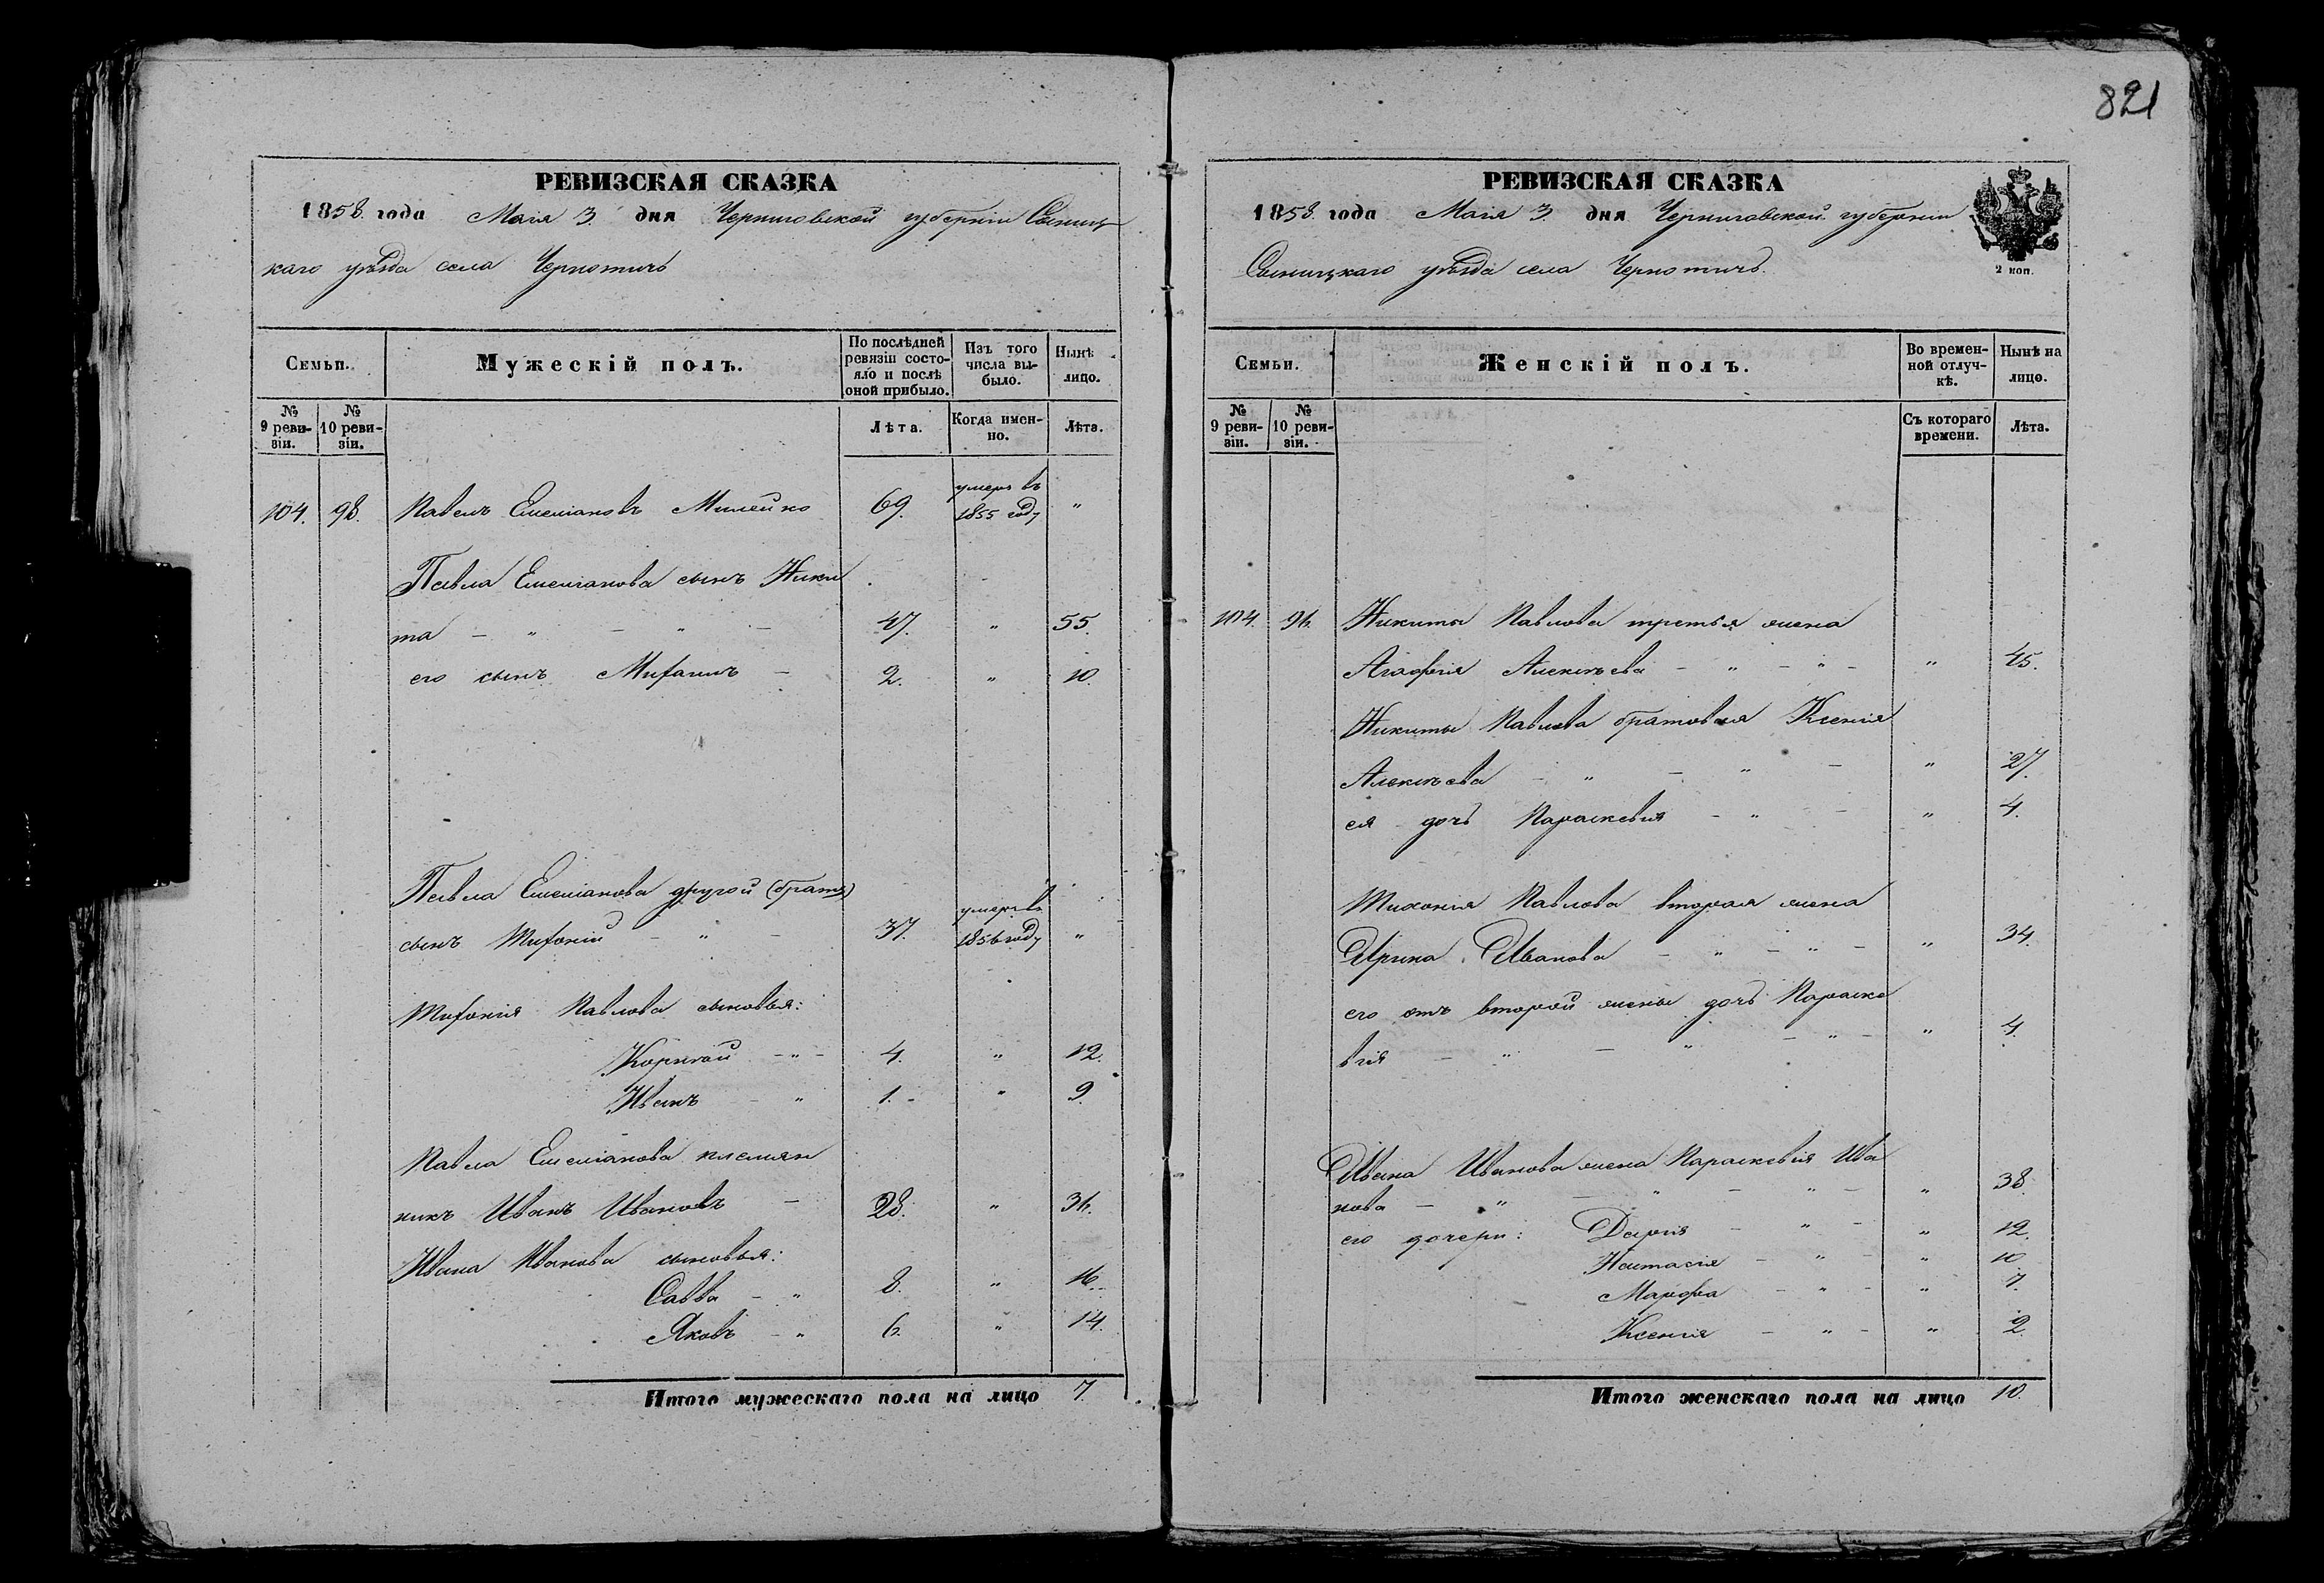 821
РЕВИЗСКАЯ СКАЗКА
1858 года Маія 3 дня Черниговской губерніи Сосниц
каго уѣзда села Чернотичь
Семьи.
Мужескій полъ.
По послѣдней ревизіи состояло и послѣ оной прибыло.
Изъ того числа выбыло.
Нынѣ на лицо.
№ 9 ревизіи.
№ 10 ревизіи.
Лѣта.
Когда именно.
Лѣта.
104. 98. Павелъ Емеліановъ Милейко 69. умеръ въ 1855 году "
Павла Емеліанова сынъ Ники
та - " - " - 47. " 55.
его сынъ Михаилъ - 2. " 10.
Павла Емеліанова другой (братъ)
сынъ Тихоній - " - 37. умеръ въ 1856 году "
Тихонія Павлова сыновья:
Корнѣй - " - 4. " 12.
Иванъ - " 1. - " 9.
Павла Емеліанова племян
никъ Иванъ Ивановъ - 28. " 36.
Ивана Иванова сыновья:
Савва - " 8. " 16.
Яковъ - " 6. " 14.
Итого мужескаго пола на лицо 7.
РЕВИЗСКАЯ СКАЗКА
1858 года Маія 3 дня Черниговской губерніи
Сосницкаго уѣзда села Чернотичь.
2 коп.
Семьи.
Женскій полъ.
Во временной отлучкѣ.
Нынѣ на лицо.
№ 9 ревизіи.
№ 10 ревизіи.
Съ котораго времени.
Лѣта.
104. 98. Никиты Павлова третья жена
Агафія Алексѣева - " - " - " 45.
Никиты Павлова братовая Ксенія
Алексѣева - " - " - " 27.
ея дочь Параскевія - " - " 4.
Тихонія Павлова вторая жена
Ирина Иванова - " - " - " 34.
его отъ второй жены дочь Параске
вія - " - " - " - " 4.
Ивана Иванова жена Параскевія Ива
нова - " - " - " - " 38.
его дочери: Дарія - " - " 12.
Настасія - " - " 10
Марфа - " - " 7.
Ксенія - " - " 2.
Итого женскаго пола на лицо 10.